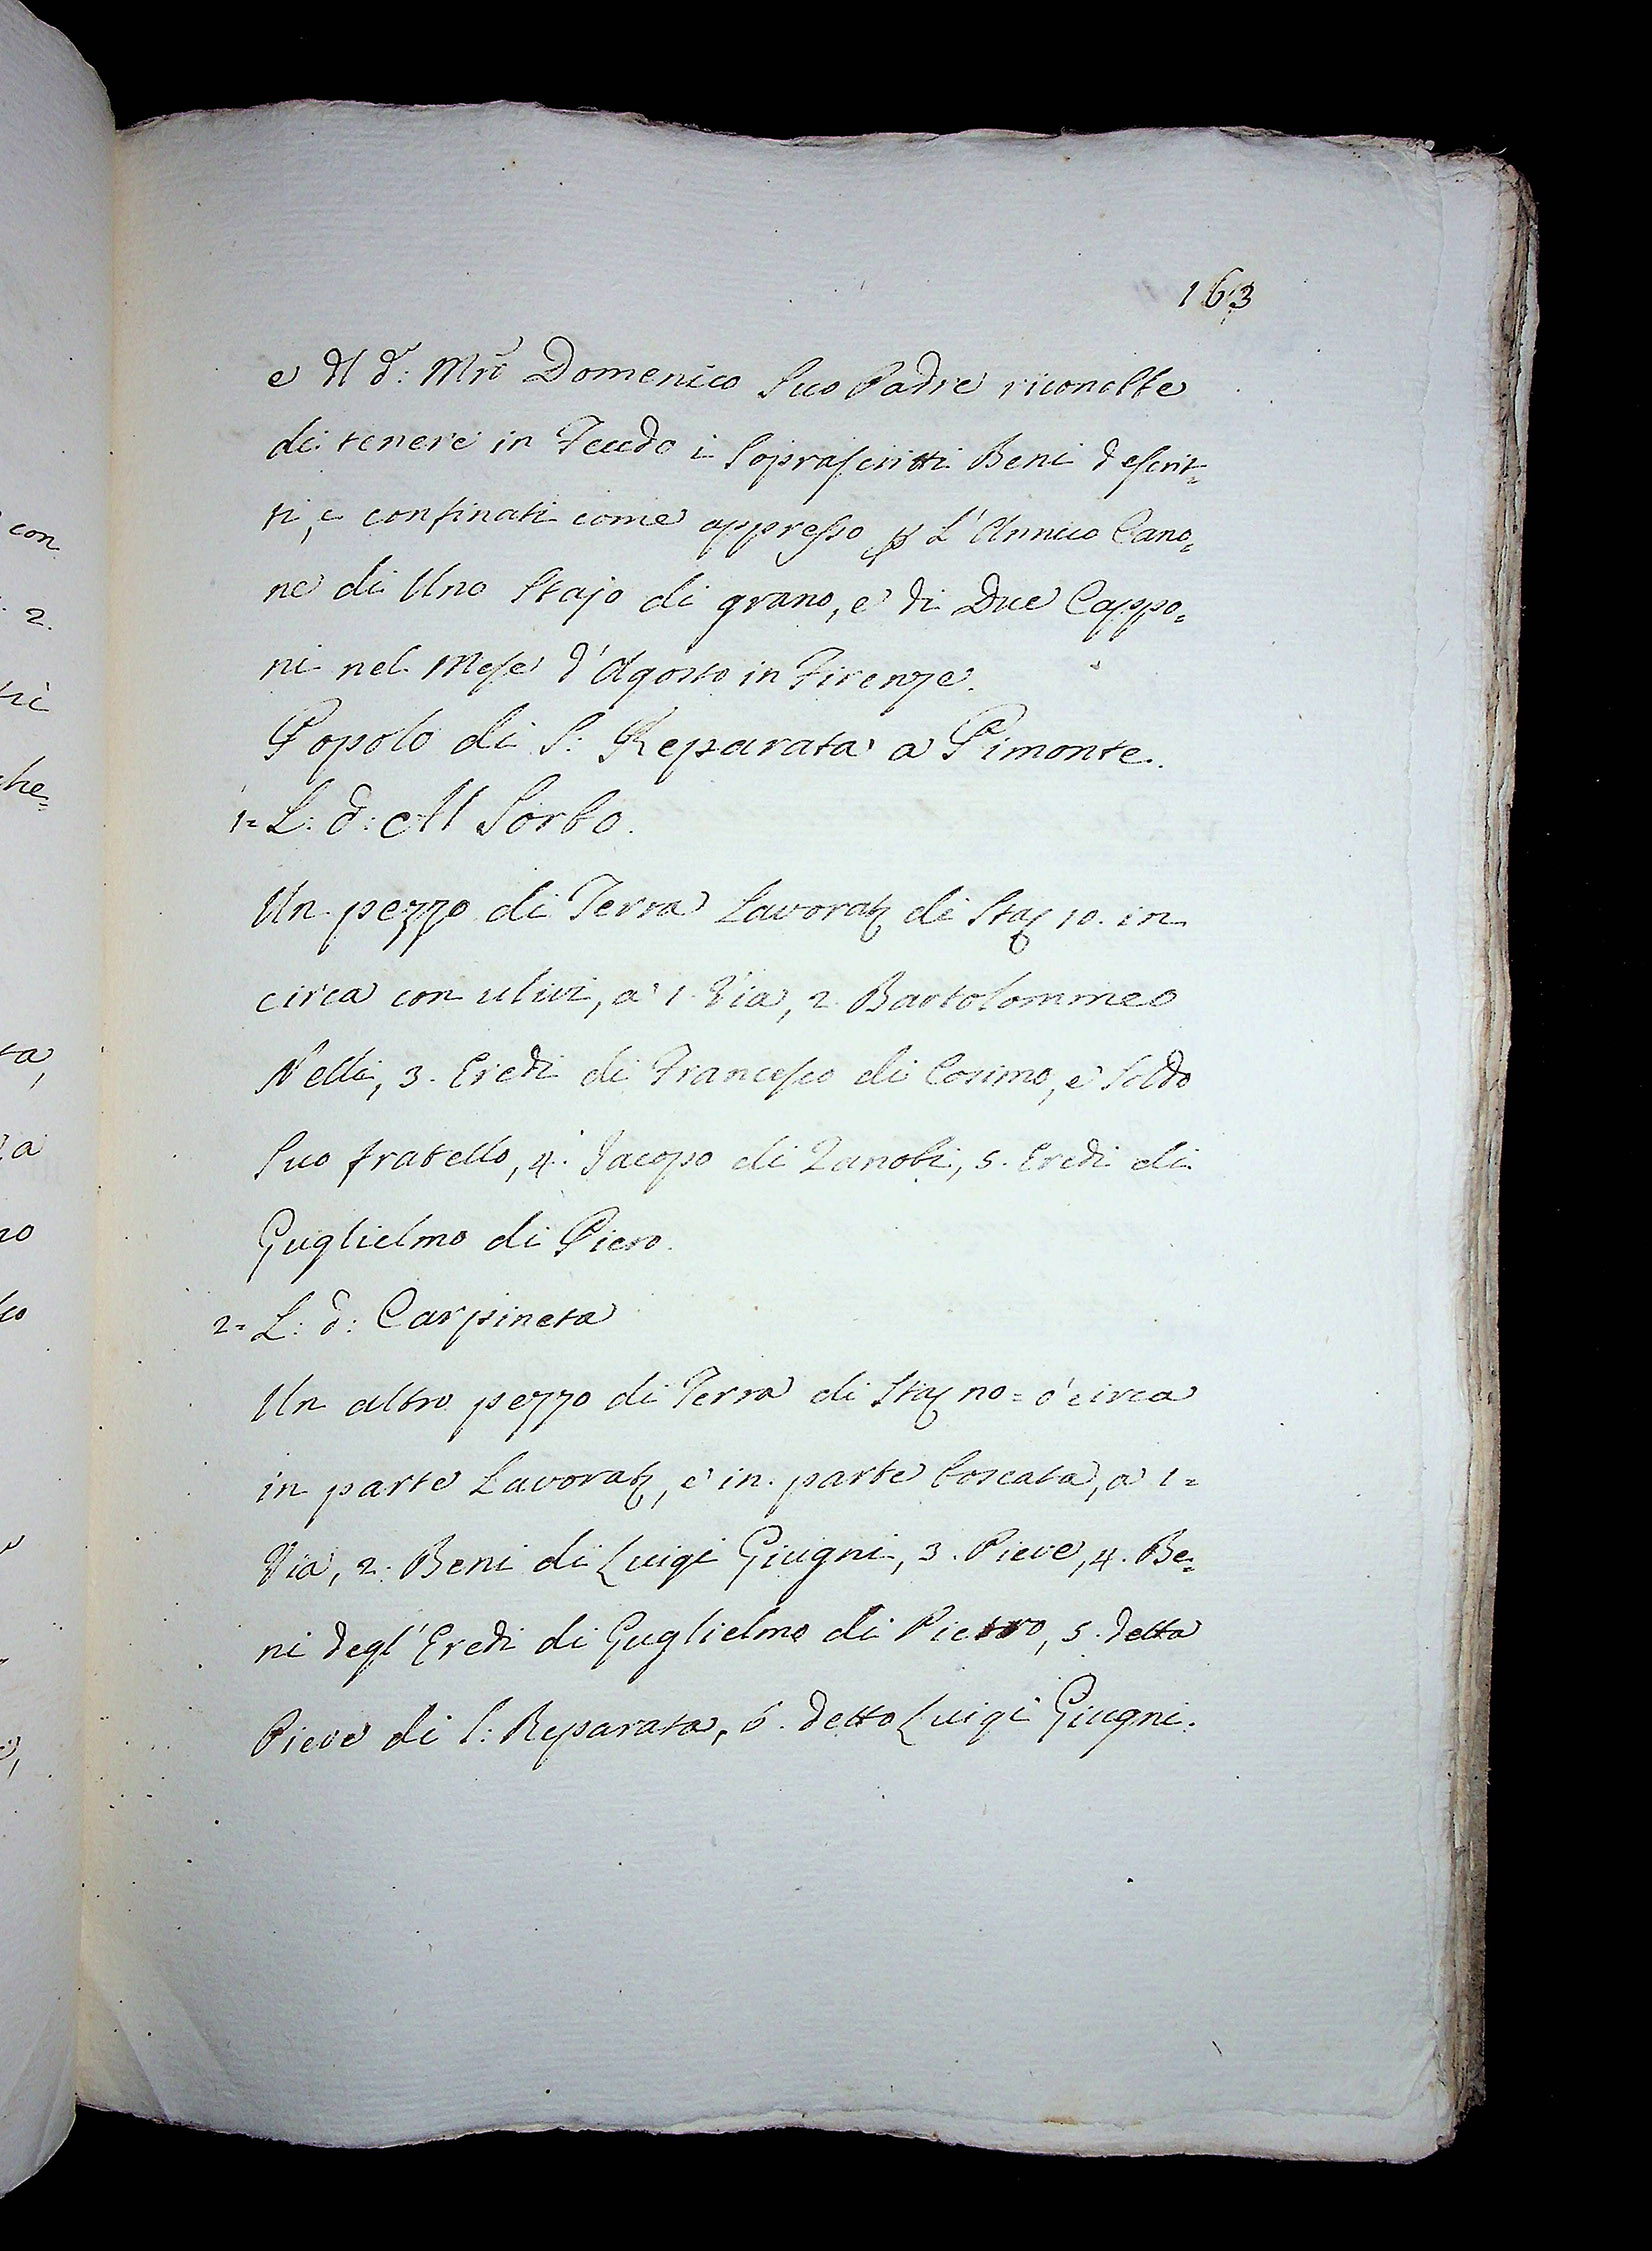 163
e dl d: Mro Domenico Suo Padre riconobbe
di tenere in Feudo i Soprascritti Beni descrit=
ti, e confinati come appresso p L'Annuo Cano=
ne di Uno Stajo di grano, e di Due Cappo=
ni nel Mese d'Agosto in Firenze.
Popolo di S: Reparata a Pimonte.
1= L: d: Al Sorbo.
Un pezzo di Terra Lavorat di Sta 10. in
circa con ulivi, a 1. Via, 2. Bartolommeo
Nelli, 3. Eredi di Francesco di Cosimo, e Soldo
Suo fratello, 4. Jacopo di Zanobi, 5. Eredi di
Guglielmo di Piero.
2= L: d: Carpineta
Un altro pezzo di Terra di Sta no= ò circa
in parte Lavorat, e in parte boscata, a 1=
Via, 2. Beni di Luigi Giugni, 3. Pieve, 4. Be=
ni degl'Eredi di Guglielmo di Pietro, 5. detta
Pieve di S: Reparata, 6. detto Luigi Giugni.
con
2.
he=
ta,
a
no